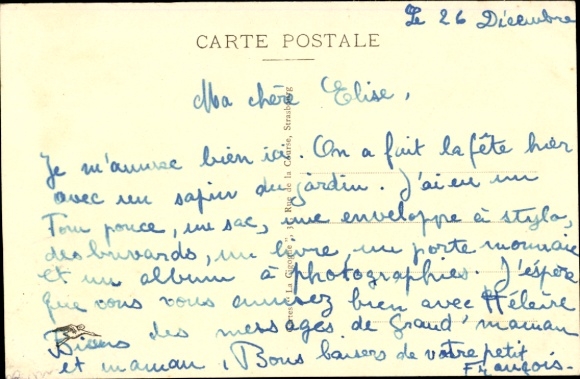 Le 26 Décembre
CARTE POSTALE
Ma chère Elise,
Je m'amuse bien ici. On a fait la fête hier
avec un sapin du jardin. J'ai eu un
Tom pouce, un sac, une enveloppe à stylo,
des buvards, un livre, un porte monnaie
et un album à photographies. J'espère
que vous vous amusez bien avec Hélène
Biens des messages de Grand' maman
et maman, Bons baisers de votre petit
François.
"La Cigogne", 31 Rue de la Course, Strasbourg